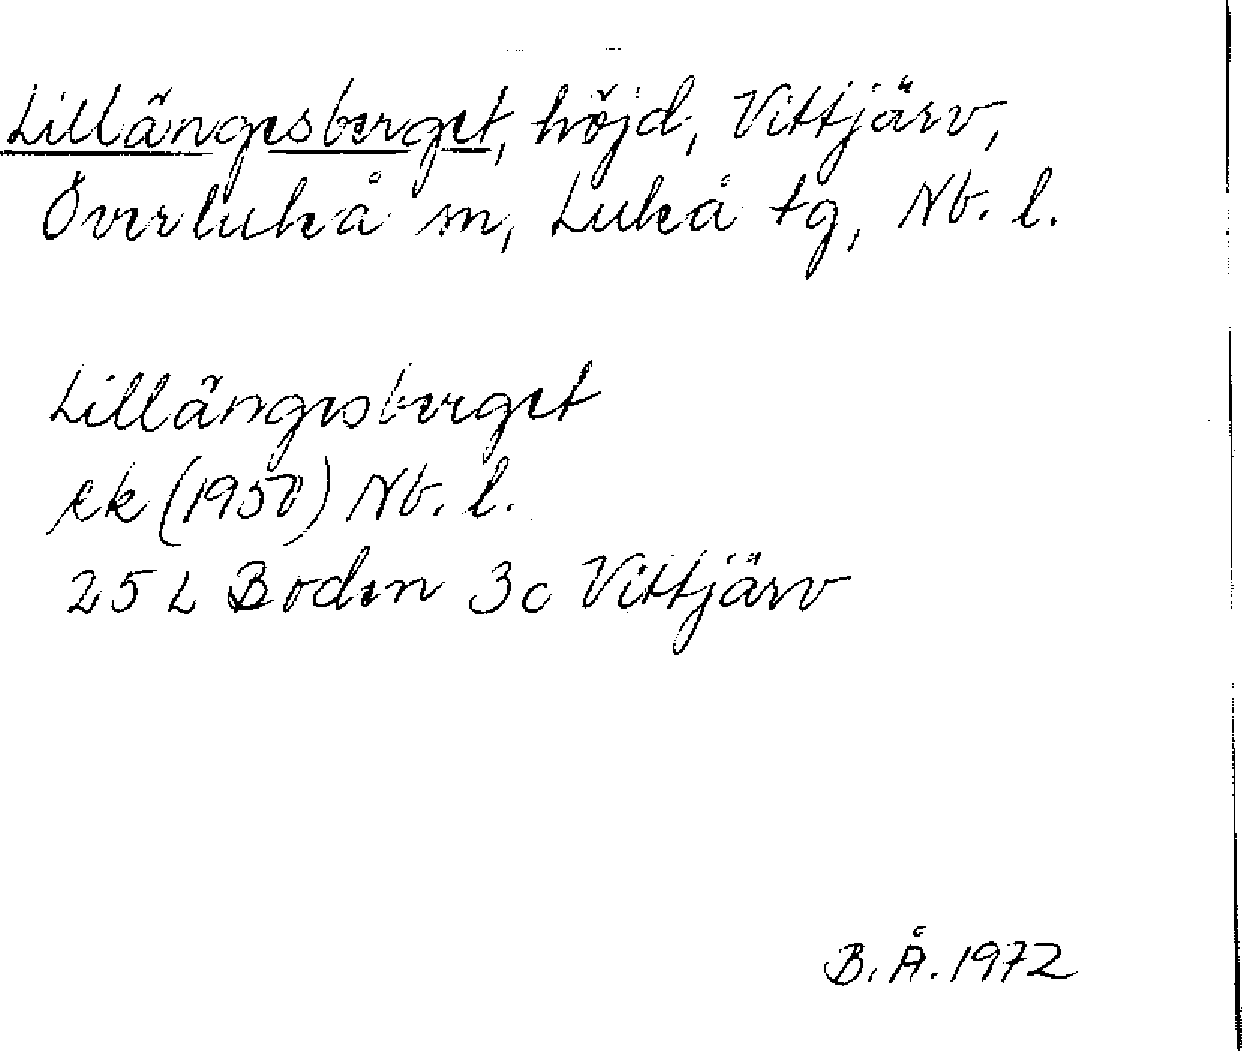 Lillängesberget, höjd, Vittjärv,
Överluleå sn, Luleå tg, Nb. l.
Lillängesberget
ek (1950) Nb. l.
25 L Boden 3c Vittjärv
B. Å. 1972